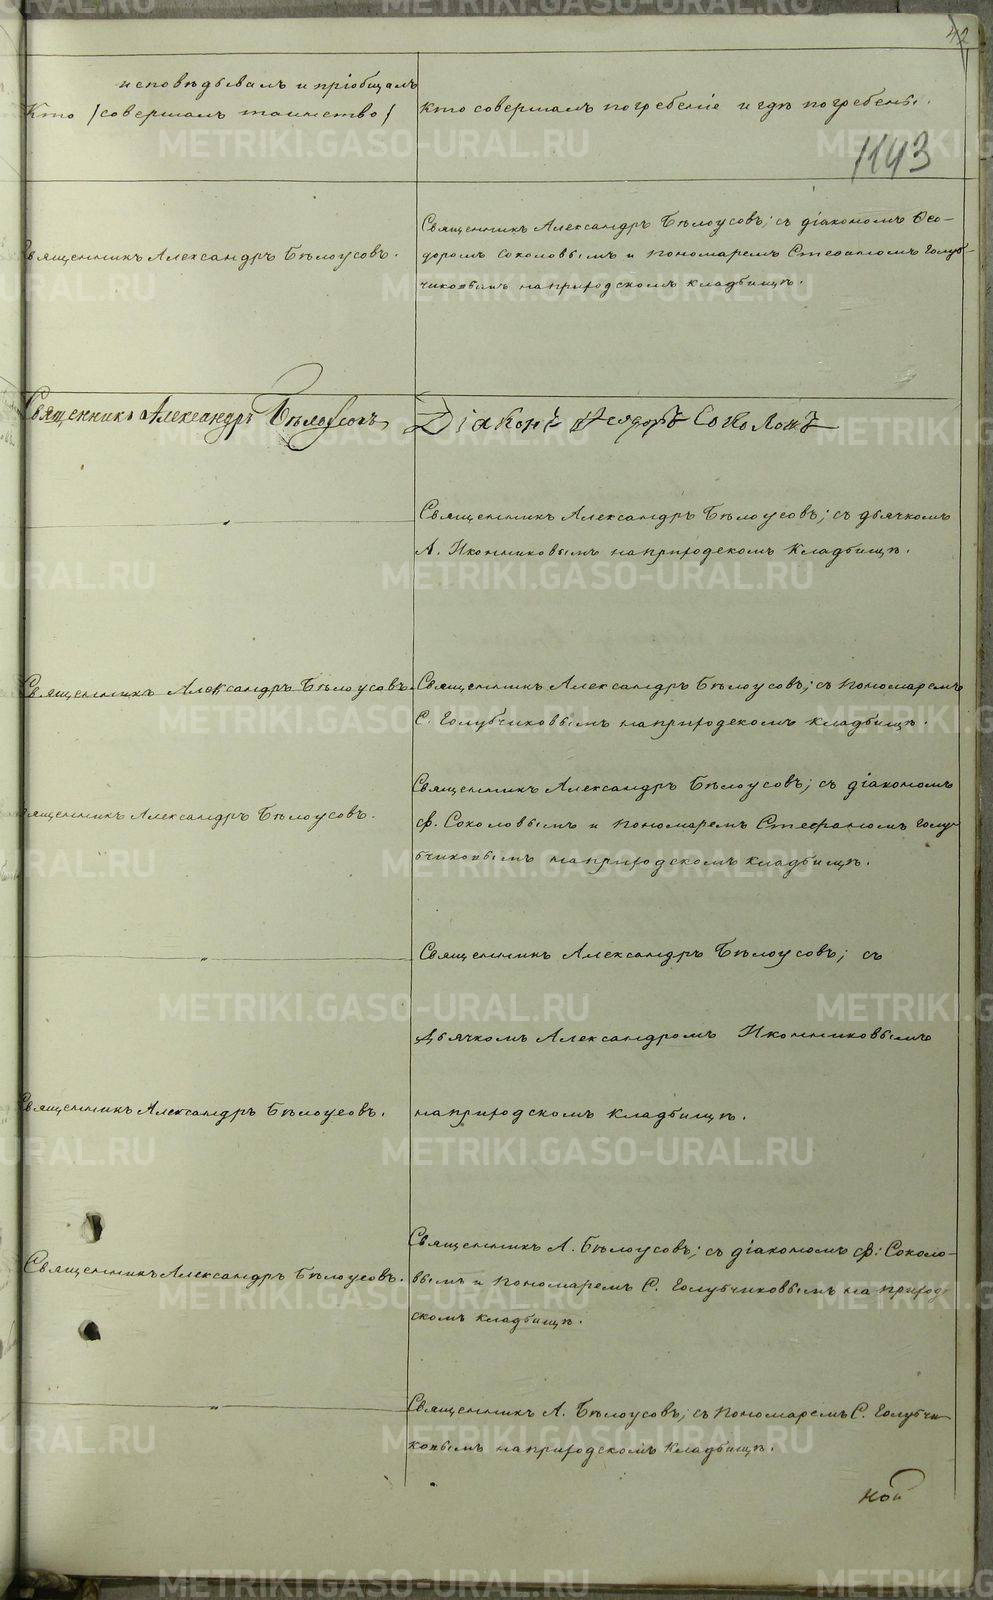 42
исповѣдывалъ и пріобщалъ
Кто /совершалъ таинство/
кто совершалъ погребеніе и гдѣ погребены.
1143
Священникъ Александръ Бѣлоусовъ.
Священникъ Александръ Бѣлоусовъ; съ діакономъ Ѳео-
доромъ Соколовымъ и пономаремъ Стефаномъ Голуб-
чиковымъ на природскомъ кладбищѣ.
Священникъ Александръ Бѣлоусовъ
Діаконъ Ѳеодоръ Соколовъ
"
Священникъ Александръ Бѣлоусовъ; съ дьячкомъ
А. Иконниковымъ на природскомъ кладбищѣ.
Священникъ Александръ Бѣлоусовъ.
Священникъ Александръ Бѣлоусовъ; съ пономаремъ
С. Голубчиковымъ на природскомъ кладбищѣ.
Священникъ Александръ Бѣлоусовъ.
Священникъ Александръ Бѣлоусовъ; съ діакономъ
Ѳ. Соколовымъ и пономаремъ Стефаномъ Голу-
бчиковымъ на природскомъ кладбищѣ.
"
Священникъ Александръ Бѣлоусовъ; съ
Дьячкомъ Александромъ Иконниковымъ
Священникъ Александръ Бѣлоусовъ.
на природскомъ кладбищѣ.
Священникъ Александръ Бѣлоусовъ.
Священникъ А. Бѣлоусовъ; съ діакономъ Ѳ: Соколо-
вымъ и пономаремъ С. Голубчиковымъ на природ-
скомъ кладбищѣ.
"
Священникъ А. Бѣлоусовъ; съ пономаремъ С. Голубчи-
ковымъ на природскомъ кладбищѣ.
ной